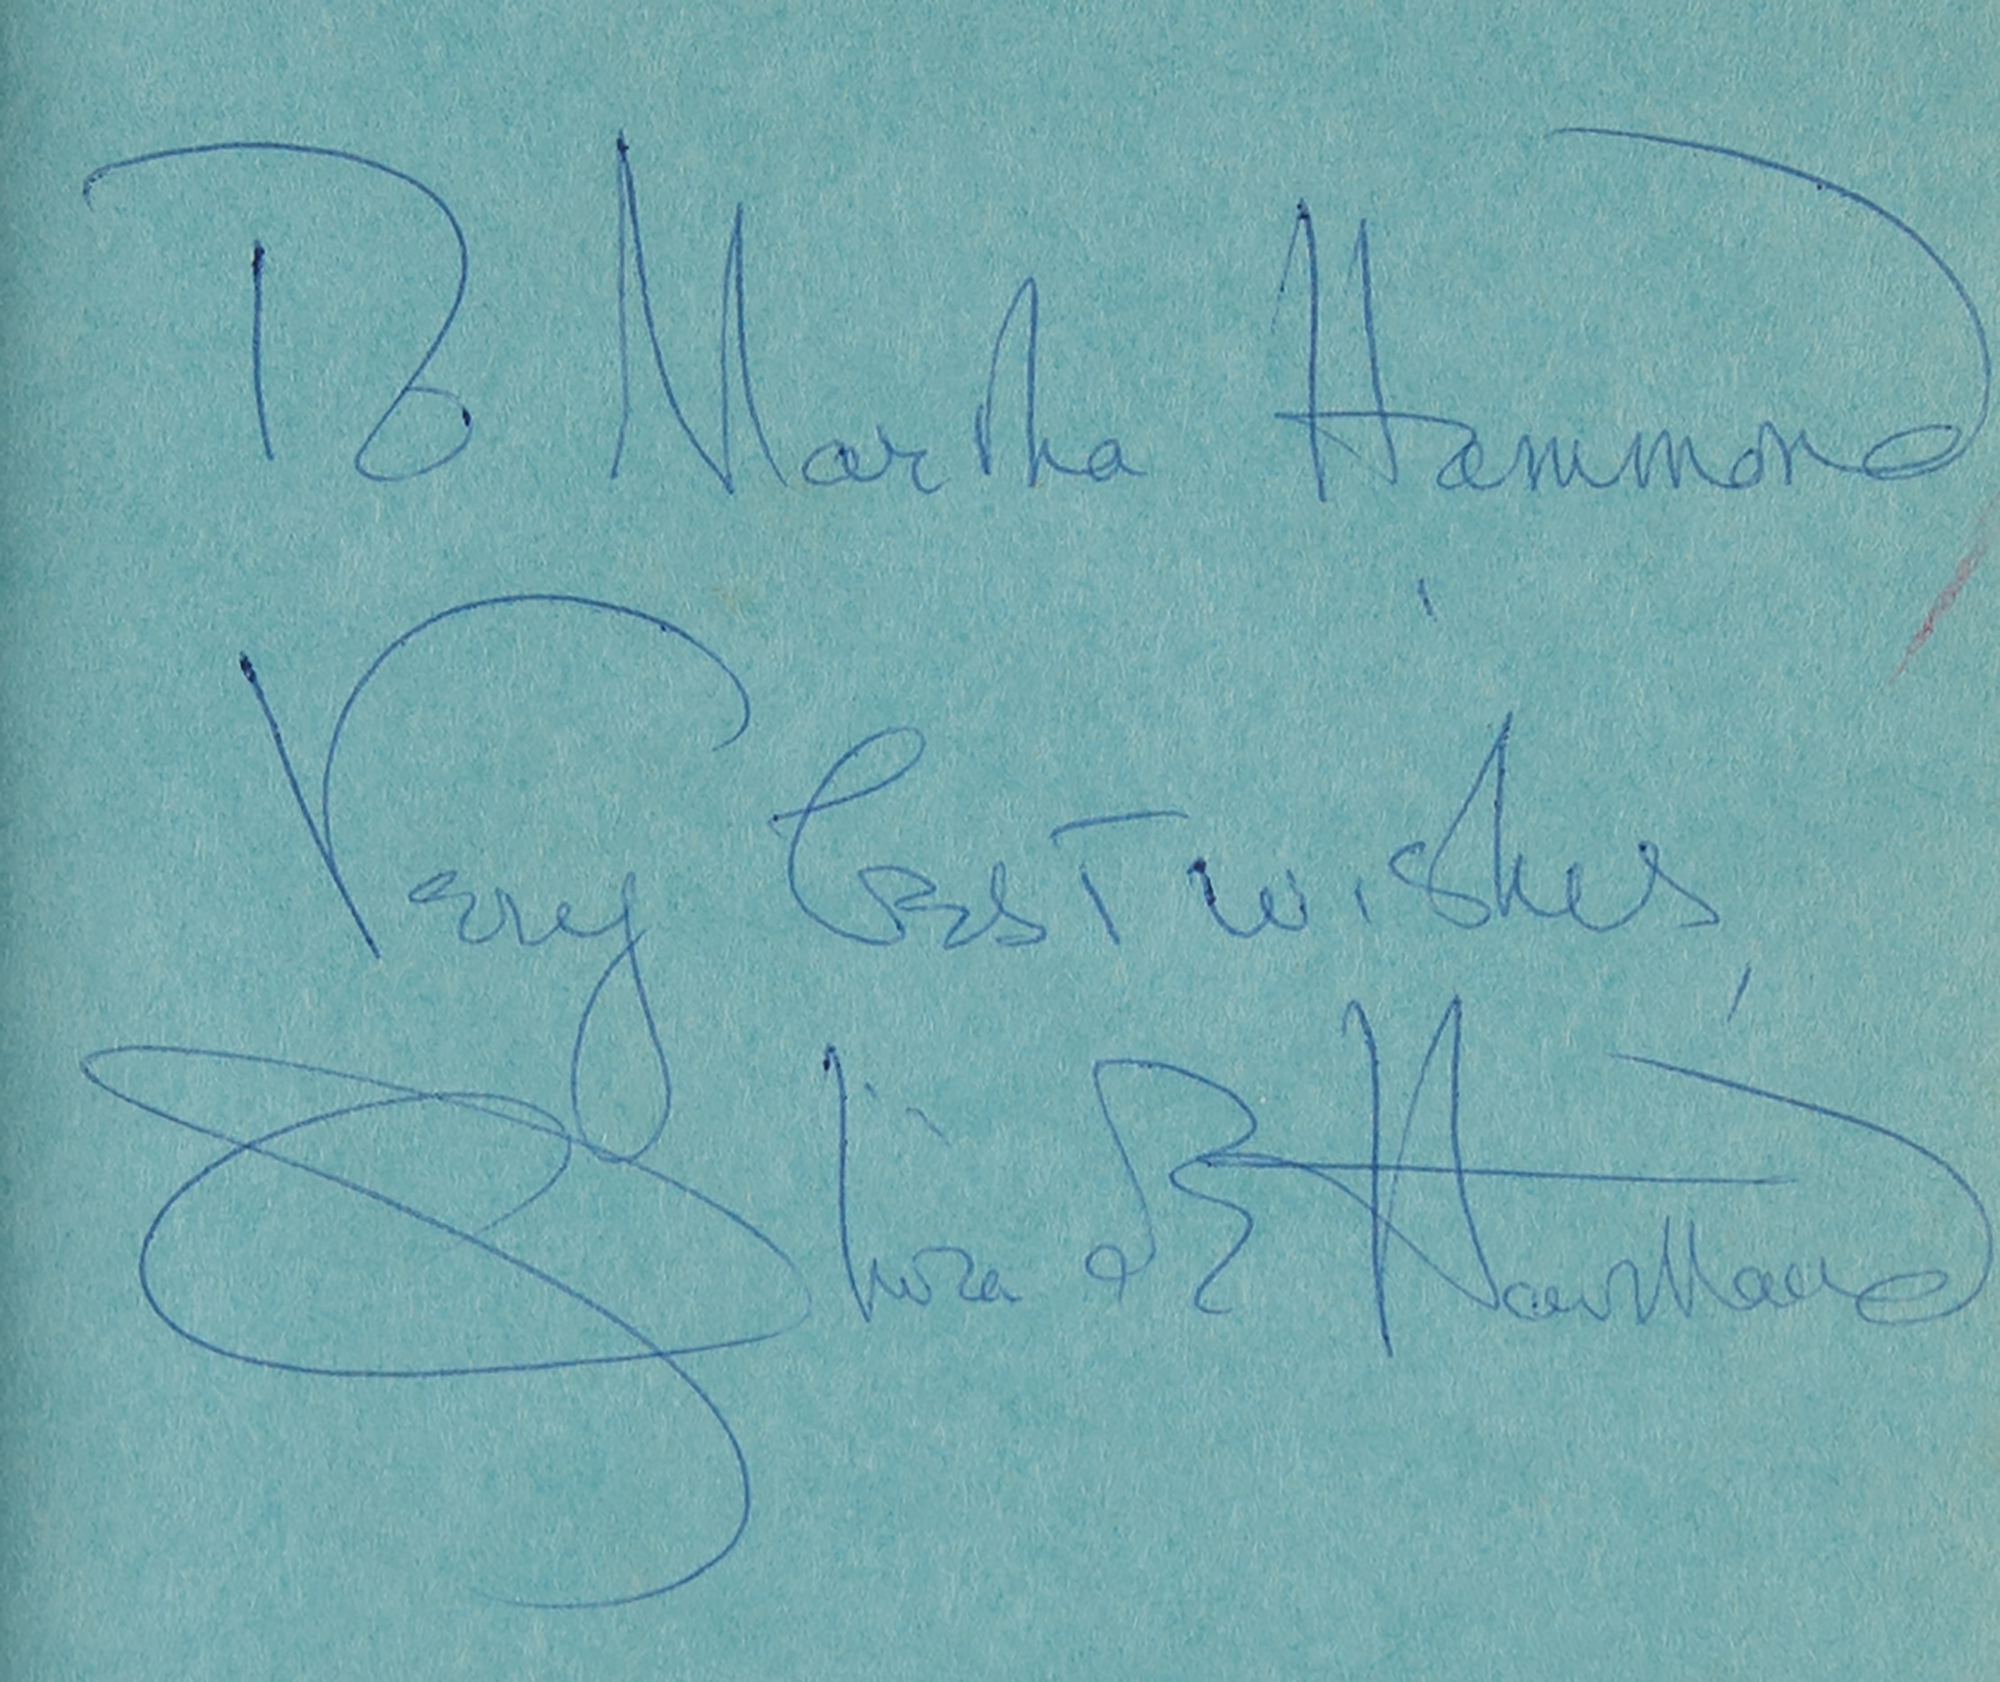 To Martha Hammond
Very best wishes
Olivia de Havilland